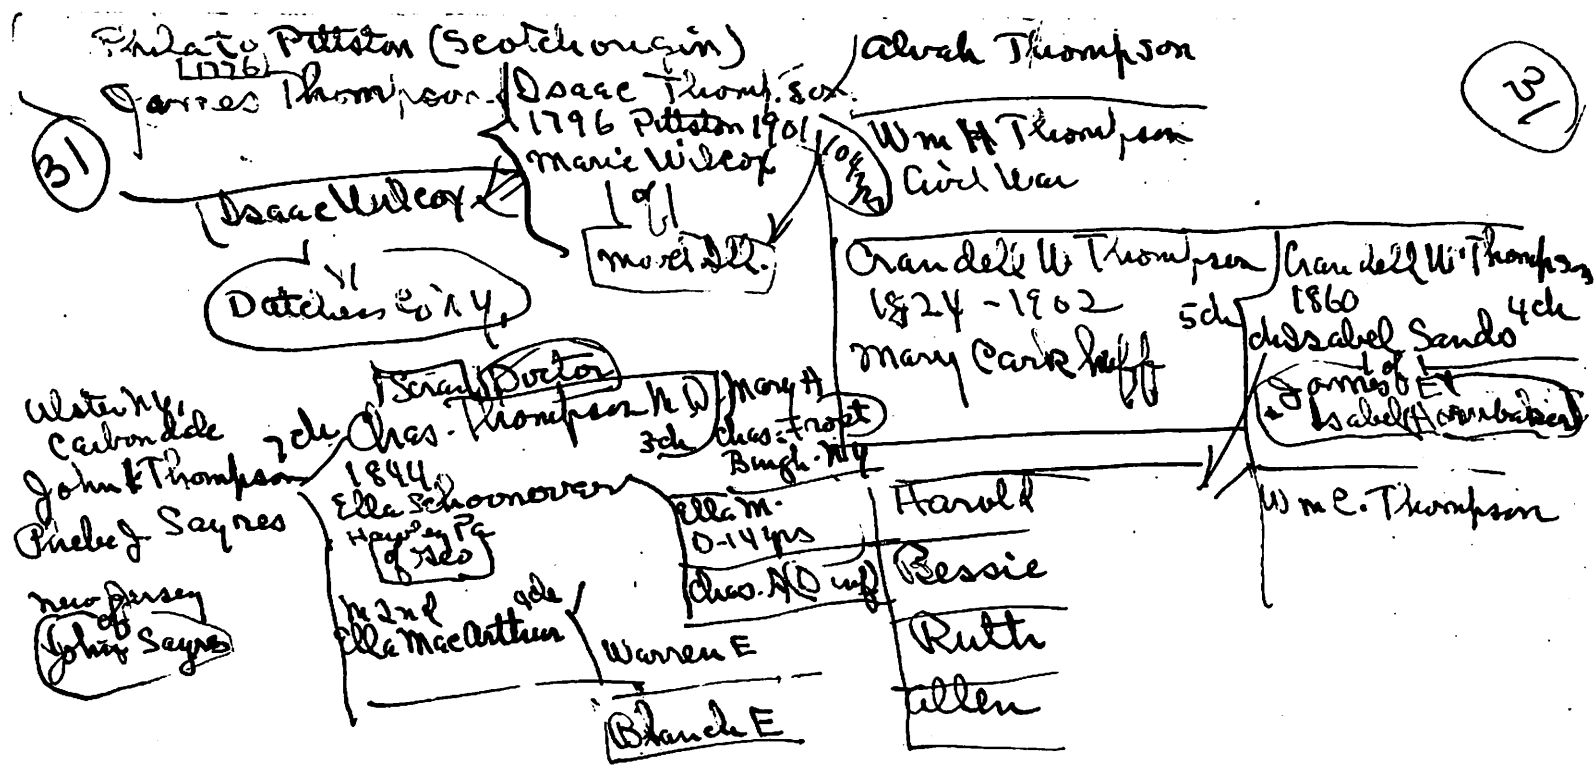 Phila to Pittston (Scotch origin)
1776
James Thompson
31
Isaac Thompson
1796 Pittston 1901
Marie Wilcox
of
moved Ill.
Isaac Wilcox
Dutchess Co N Y,
Alvah Thompson
31
Wm H Thompson
Civil War
Crandell W Thompson
1824 - 1902
5ch
Mary Carkhuff
Crandell W Thompson
1860
4ch
Isabel Sands
of
James E &
Isabel Hornbaker
Wm C. Thompson
Harold
Bessie
Ruth
Allen
Ulster Ny,
Carbondale
7ch
John Thompson
Phebe J Sayres
New Jersey
of
John Sayres
Scran Doctor
Chas. Thompson M D
3ch
1844
Ella Schoonover
Hawley Pa
of Geo
M 2nd
Ella MacArthur
Mary A
Chas. Frost
Bingh. Ny
Ella M.
0-14 yrs
Chas. A (D inf)
Warren E
Blanch E